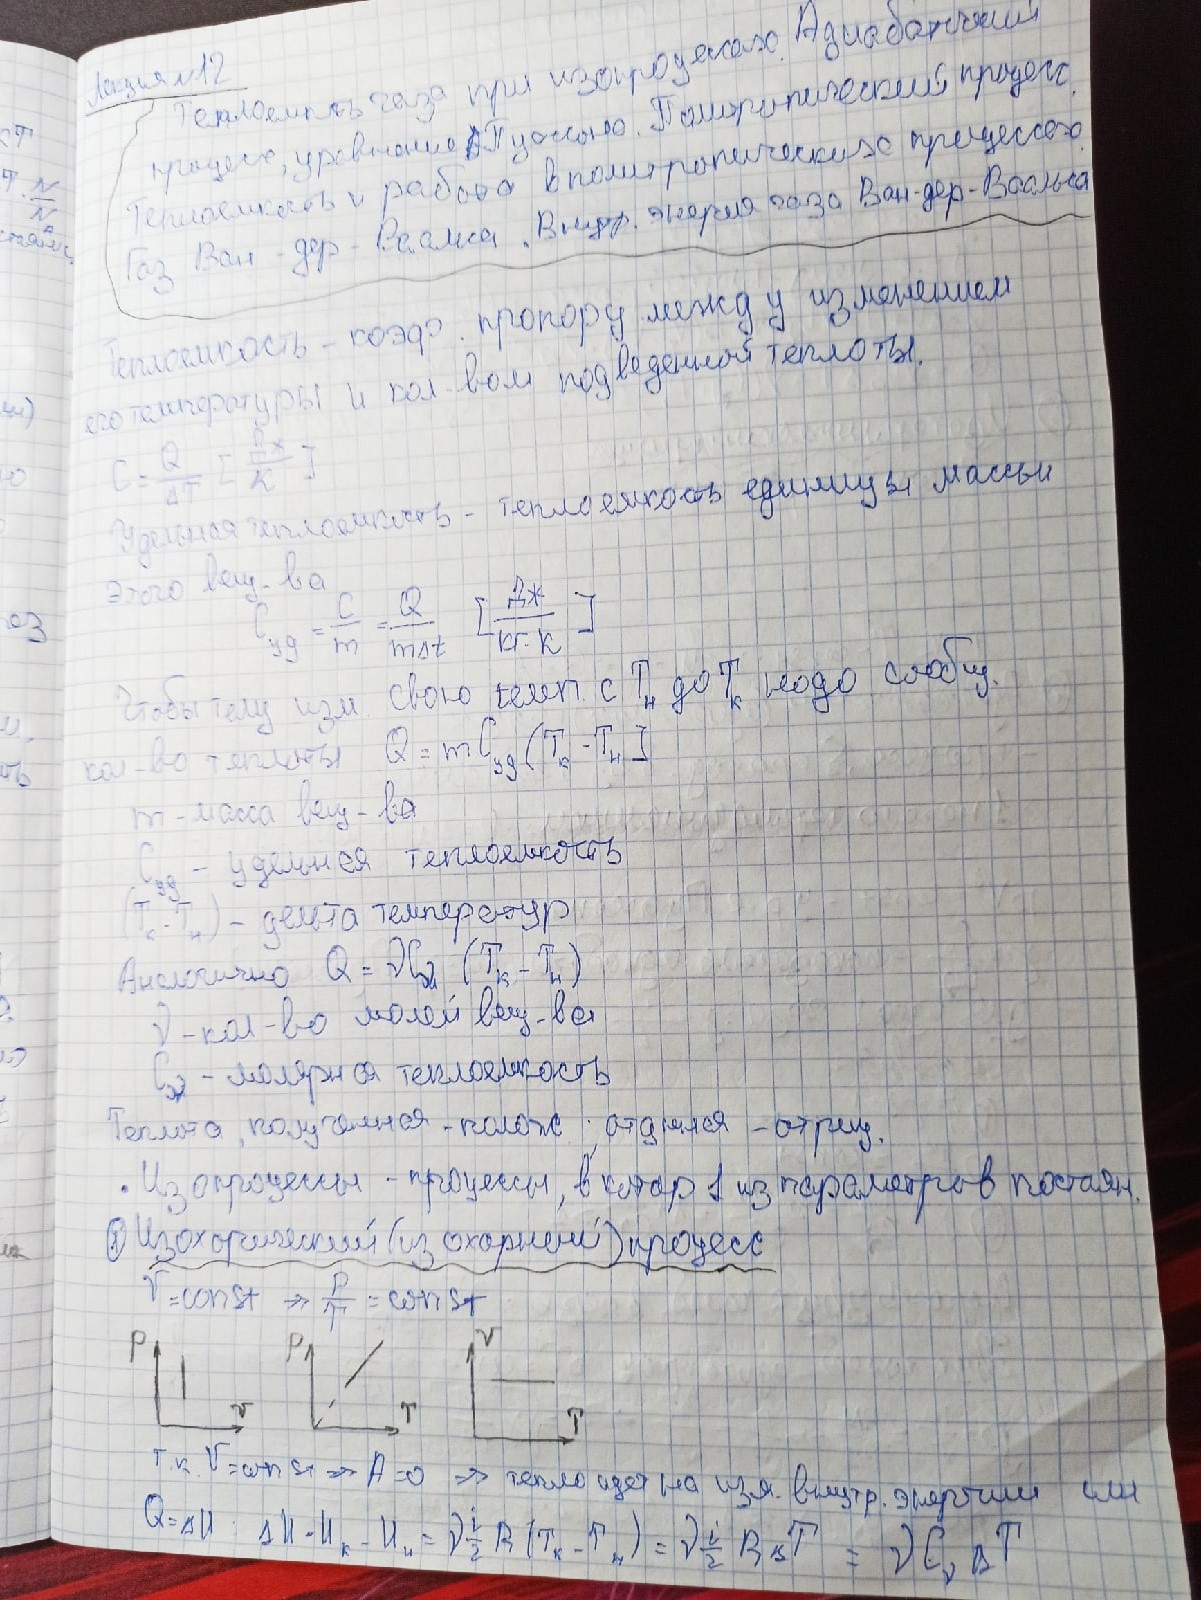 Лекция №12
Теплоемкость газа при изопроцессах. Адиабатический
процесс, уравнение Пуассона. Политропический процесс.
Теплоемкость и работа в политропических процессах.
Газ Ван-дер-Ваальса. Внутр. энергия газа Ван-дер-Ваальса
Теплоемкость - коэф. пропорц между изменением
его температуры и кол-вом подведенной теплоты.
C = Q/ΔT [Дж/К]
Удельная теплоемкость - теплоемкость единицы массы
этого вещ-ва
C уд = C/m = Q/mΔt [Дж/кг·К]
Чтобы телу изм. свою темп. с Tн до Tк надо сообщ.
кол-во теплоты Q = mCуд(Tк - Tн]
m - масса вещ-ва
Cуд - удельная теплоемкость
(Tк - Tн) - дельта температур
Аналогично Q = νCм (Tк - Tн)
ν - кол-во молей вещ-ва
Cм - молярная теплоемкость
Теплота, получаемая - полож. отданная - отриц.
• Изопроцессы - процессы, в котор 1 из параметров постоян.
① Изохорический (изохорный) процесс
V=const ⇒ P/T = const
P P V
V T T
т.к. V=const ⇒ A=0 ⇒ тепло идет на изм. внутр. энергии или
Q=ΔU ΔU=Uк-Uн = ν i/2 R (Tк - Tн) = ν i/2 RΔT = νCνΔT